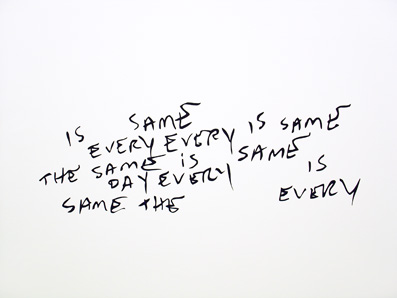 SAME
IS EVERY EVERY IS SAME
THE SAME IS SAME
DAY EVERY IS
SAME THE EVERY